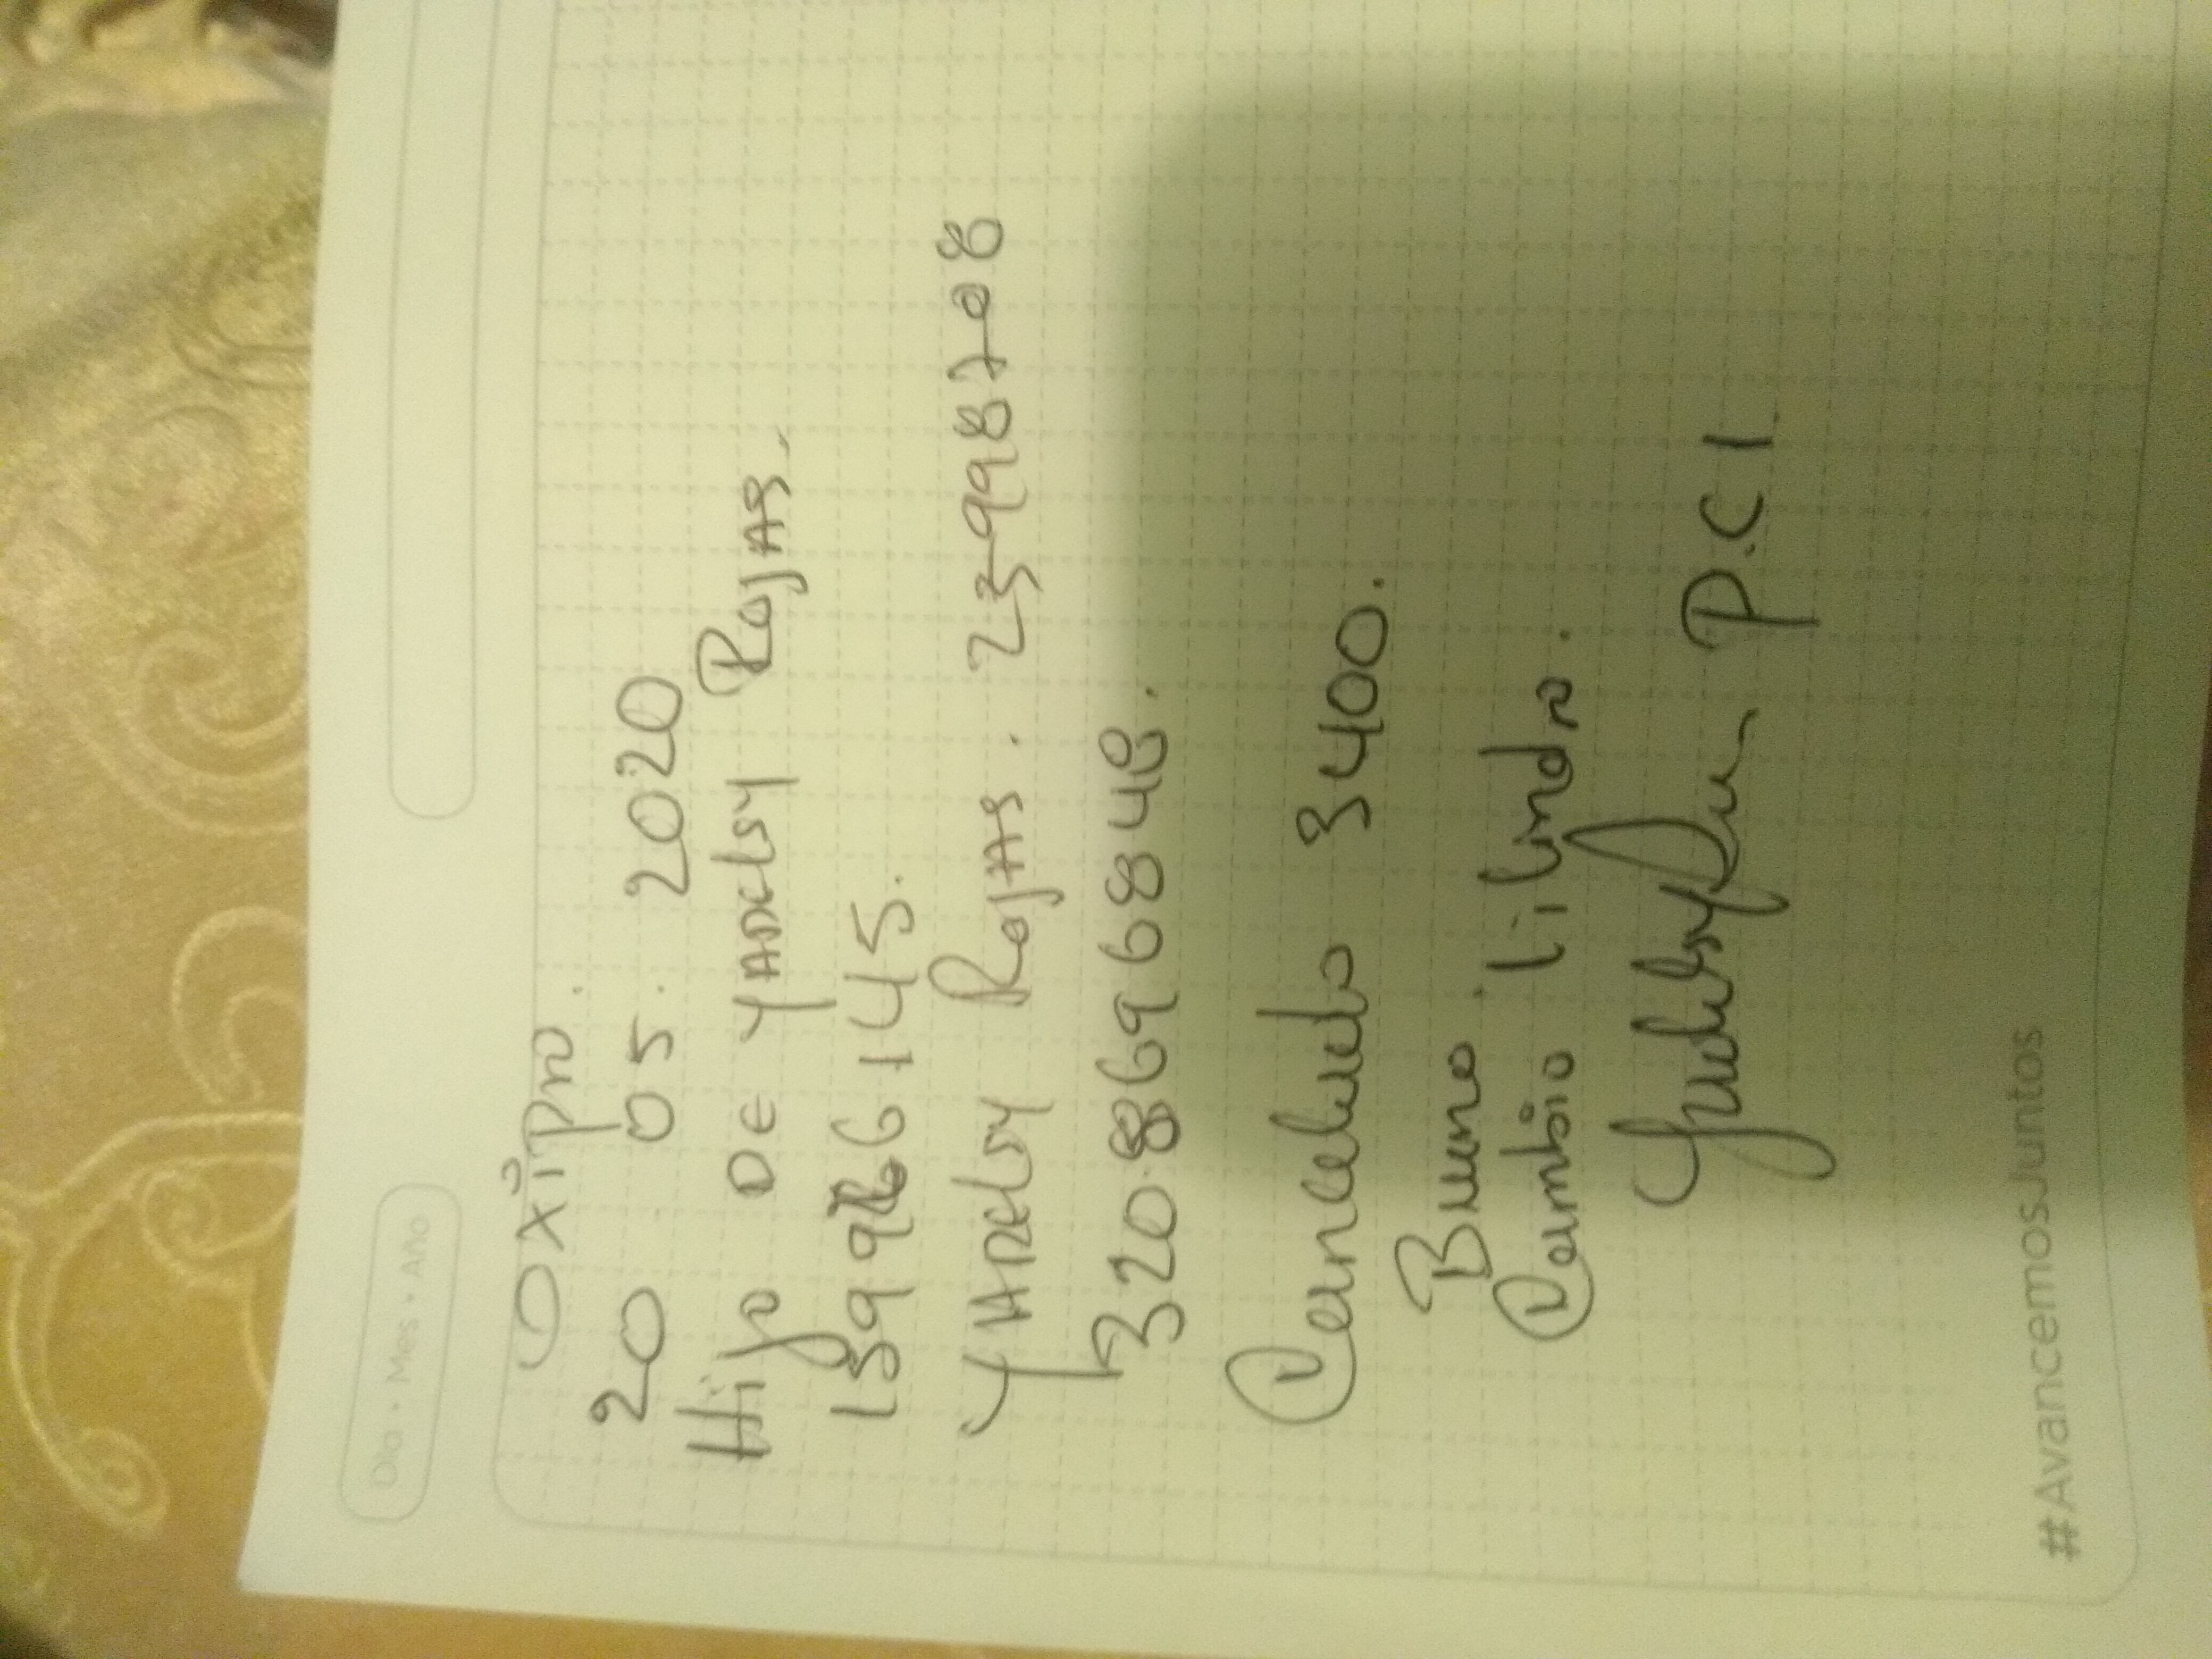 Dia • Mes • Año
Oxipro.
20 05. 2020
Hijo DE YADELSY ROJAS.
1599266145.
YADELSY ROJAS. 23998708
320.8696848.
Cancelado 3400.
Bueno.
Cambio Cilindro.
P.C 1.
#AvancemosJuntos